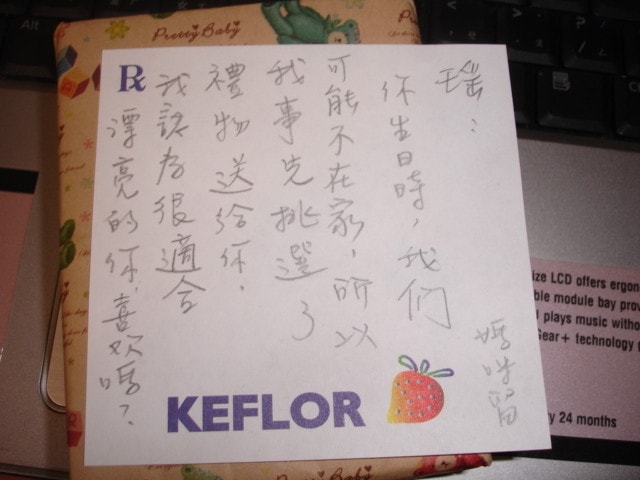 瑤：
你生日時，我们
可能不在家，所以
我事先挑選了
禮物送給你，
我認為很適合
漂亮的你，喜欢嗎？
媽咪留
℞
KEFLOR
Pretty Baby
Pretty Baby
ize LCD offers ergon
ble module bay prov
l plays music withou
Gear+ technology
y 24 months
Alt